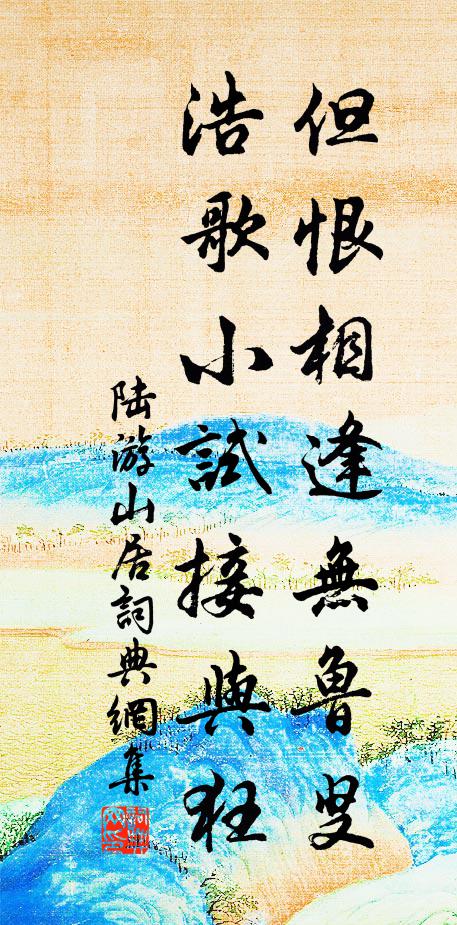 但恨相逢無魯叟
浩歌小試接輿狂
陆游山居詞典網集